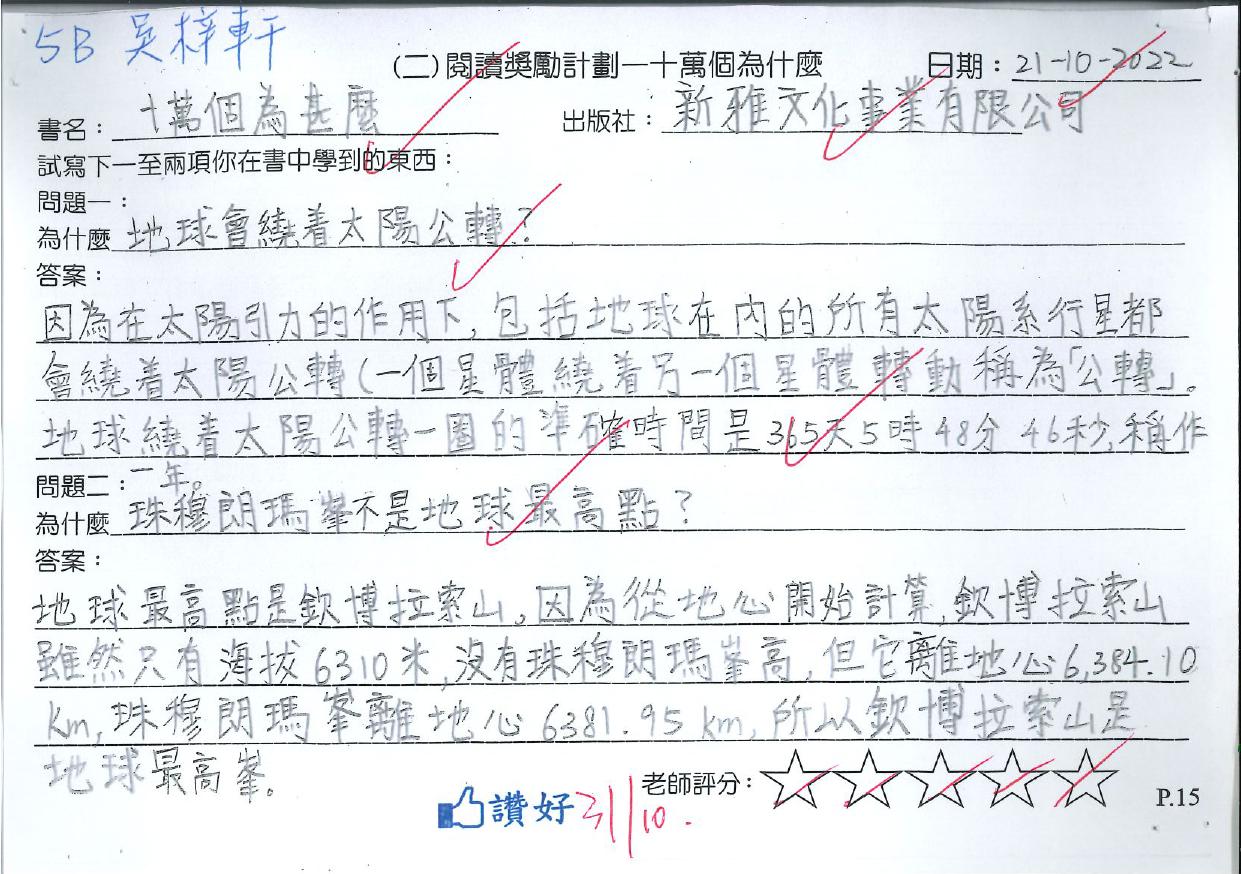 5B 吳梓軒
(二)閱讀獎勵計劃—十萬個為什麼 日期：21-10-2022
書名：十萬個為甚麼 出版社：新雅文化事業有限公司
試寫下一至兩項你在書中學到的東西：
問題一：
為什麼 地球會繞着太陽公轉？
答案：
因為在太陽引力的作用下，包括地球在內的所有太陽系行星都
會繞着太陽公轉(一個星體繞着另一個星體轉動稱為「公轉」。
地球繞着太陽公轉一圈的準確時間是365天5時48分 46秒，稱作
一年。
問題二：
為什麼 珠穆朗瑪峯不是地球最高點？
答案：
地球最高點是欽博拉索山。因為從地心開始計算，欽博拉索山
雖然只有海拔6310米，沒有珠穆朗瑪峯高，但它離地心6,384.10
km，珠穆朗瑪峯離地心6381.95km，所以欽博拉索山是
地球最高峯。
老師評分：
讚好 31/10.
P.15